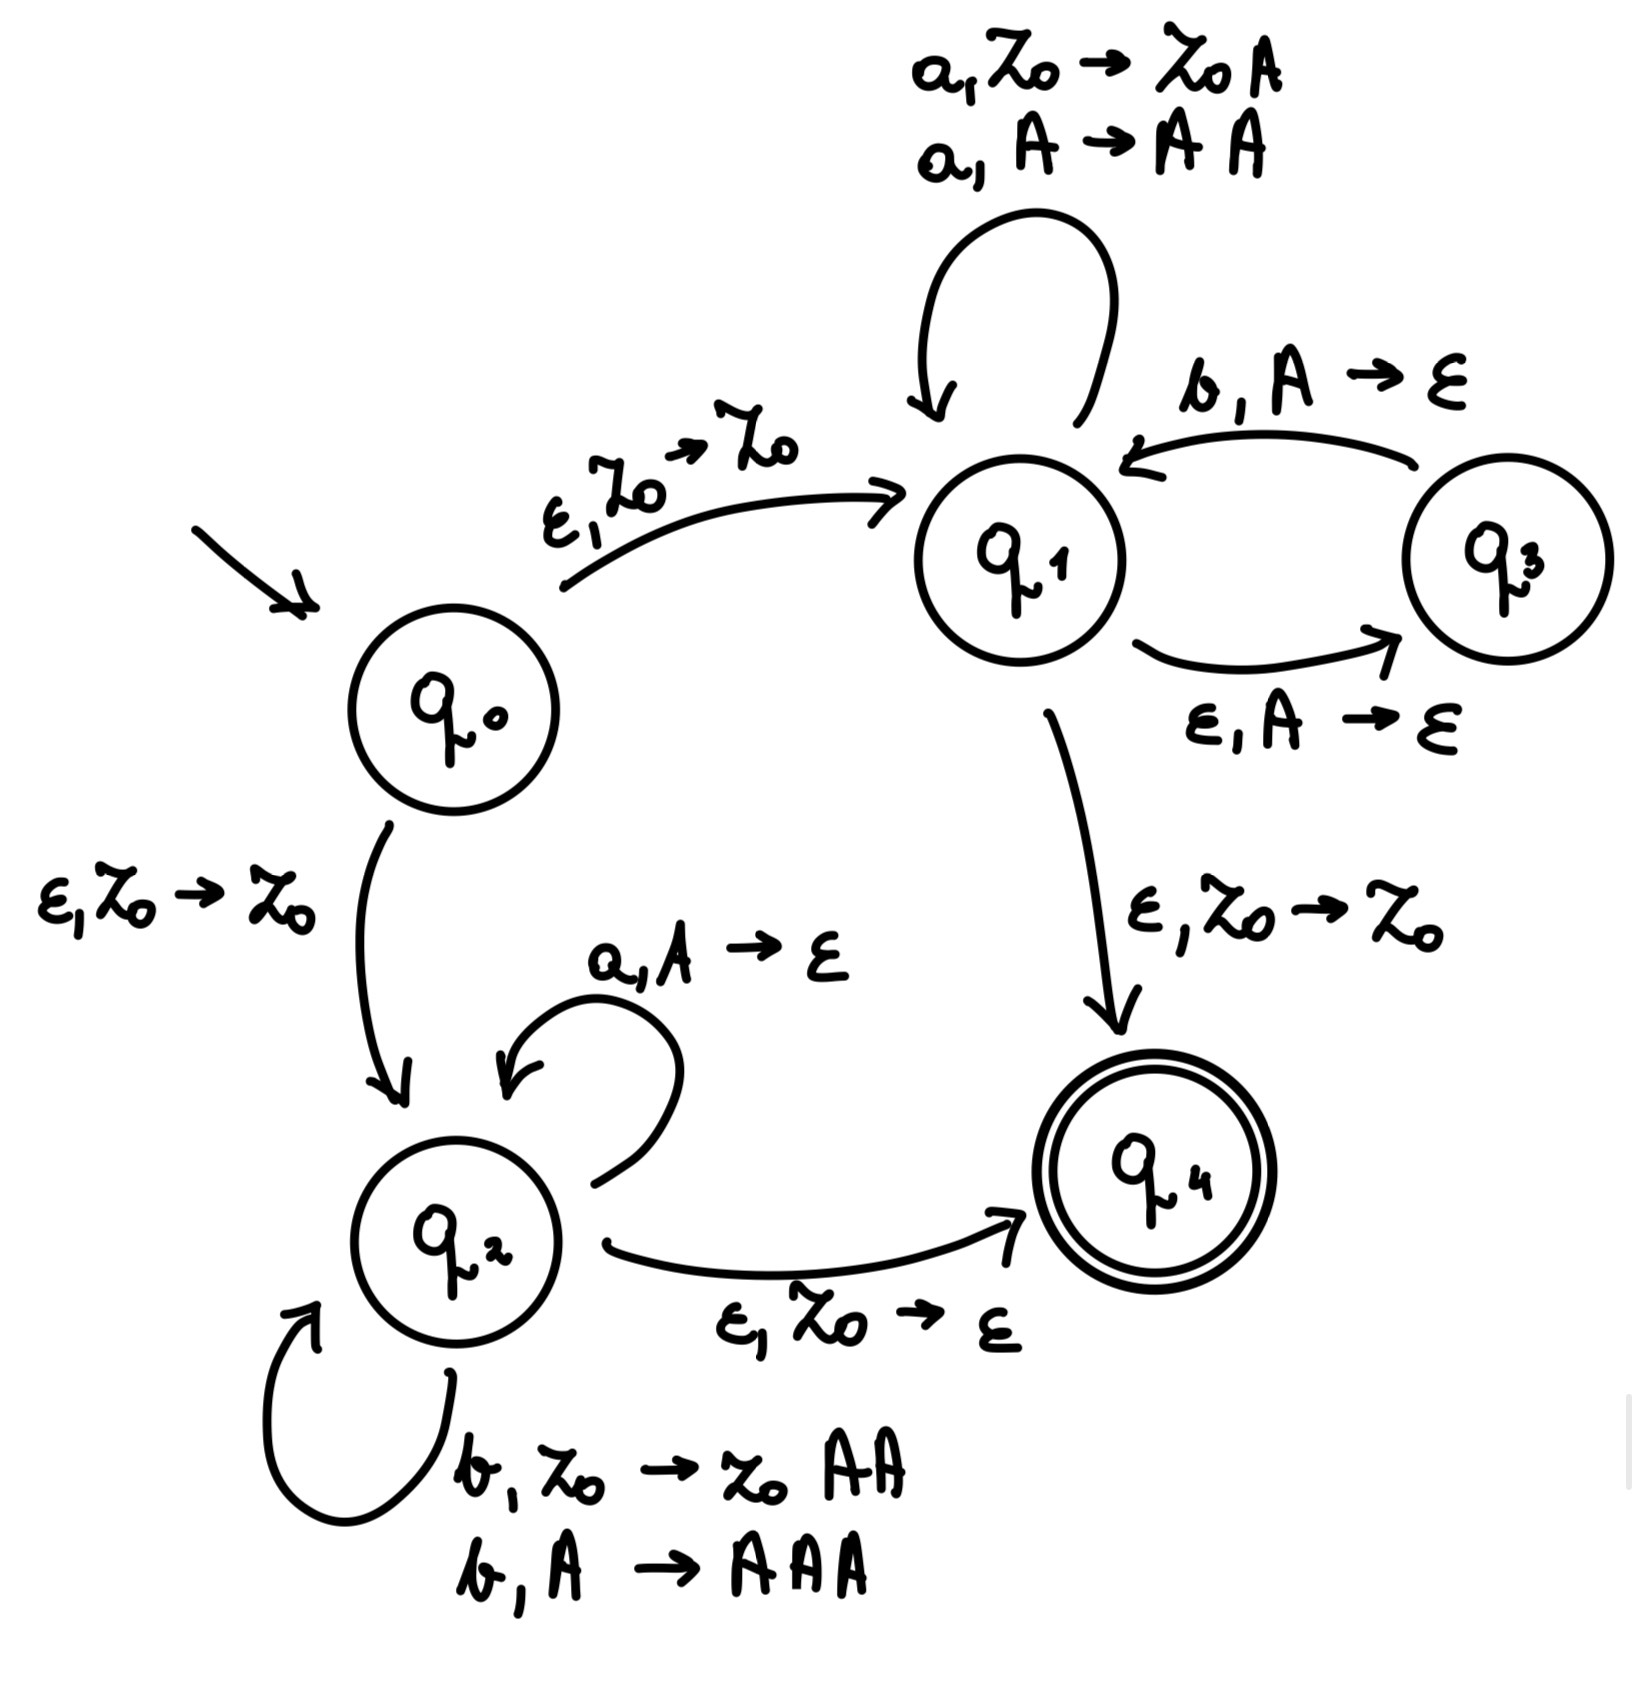 a, Z₀ → Z₀ A
a, A → A A
b, A → ε
ε, Z₀ → Z₀
q₁
q₃
q₀
ε, A → ε
ε, Z₀ → Z₀
ε, Z₀ → Z₀
a, A → ε
q₄
q₂
ε, Z₀ → ε
b, Z₀ → Z₀ AA
b, A → AAA